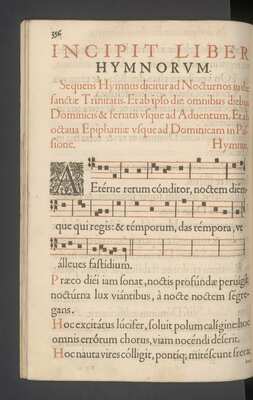 356
INCIPIT LIBER
HYMNORVM.
Sequens Hymnus dicitur ad Nocturnos
sanctæ Trinitatis. Et ab ipso die omnibus diebus
Dominicis & feriatis vsque ad Aduentum. Et ab
octaua Epiphaniæ vsque ad Dominicam in Pas-
sione. Hymnus.
AEtérne rerum cónditor, noctem diém-
que qui regis: & témporum, das témpora, vt
álleues fastídium.
Præco diéi iam sonat, noctis profúndæ peruígil:
noctúrna lux viántibus, à nocte noctem segre-
gans.
Hoc excitátus lúcifer, soluit polum calígine: hoc
omnis errórum chorus, viam nocéndi déserit.
Hoc nauta vires cólligit, pontíq; mitéscunt freta: